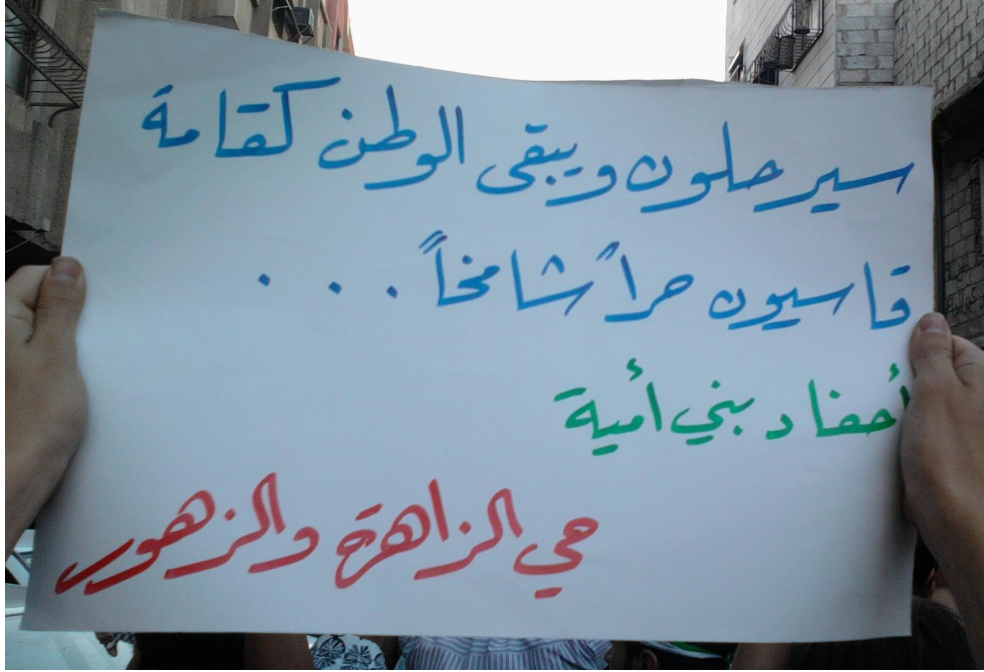 سيرحلون ويبقى الوطن كقامة
قاسيون حراً شامخاً . . .
أحفاد بني أمية
حي الزاهرة والزهور